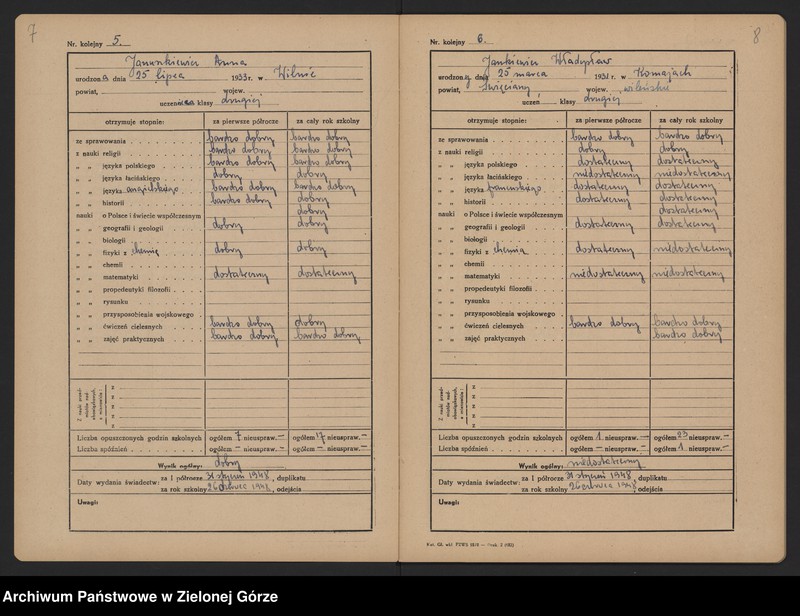 7
Nr. kolejny 5.
Januszkiewicz Anna
urodzona dnia 25 lipca 1933 r. w Wilnie
powiat, wojew.
uczennica klasy drugiej
otrzymuje stopnie: za pierwsze półrocze za cały rok szkolny
ze sprawowania bardzo dobry bardzo dobry
z nauki religii bardzo dobry bardzo dobry
„ „ języka polskiego bardzo dobry bardzo dobry
„ „ języka łacińskiego dobry dobry
„ „ języka angielskiego bardzo dobry bardzo dobry
„ „ historii bardzo dobry dobry
nauki o Polsce i świecie współczesnym dobry
„ „ geografii i geologii dobry dobry
„ „ biologii
„ „ fizyki z chemią dobry dobry
„ „ chemii
„ „ matematyki dostateczny dostateczny
„ „ propedeutyki filozofii
„ „ rysunku
„ „ przysposobienia wojskowego
„ „ ćwiczeń cielesnych bardzo dobry dobry
„ „ zajęć praktycznych bardzo dobry bardzo dobry
Liczba opuszczonych godzin szkolnych ogółem 7 nieuspraw. — ogółem 17 nieuspraw. —
Liczba spóźnień ogółem — nieuspraw. — ogółem — nieuspraw. —
Wynik ogólny: dobry
Daty wydania świadectw: za I półrocze 31 styczeń 1948, duplikatu
za rok szkolny 26 czerwiec 1948, odejścia
Uwagi:
8
Nr. kolejny 6.
Jankiewicz Władysław
urodzony dnia 25 marca 1931 r. w Komajach
powiat, święciany wojew. wileńskie
uczeń klasy drugiej
otrzymuje stopnie: za pierwsze półrocze za cały rok szkolny
ze sprawowania bardzo dobry bardzo dobry
z nauki religii dobry dobry
„ „ języka polskiego dostateczny dostateczny
„ „ języka łacińskiego niedostateczny niedostateczny
„ „ języka francuskiego dostateczny dostateczny
„ „ historii dostateczny dostateczny
nauki o Polsce i świecie współczesnym dostateczny
„ „ geografii i geologii dostateczny dostateczny
„ „ biologii
„ „ fizyki z chemią dostateczny niedostateczny
„ „ chemii
„ „ matematyki niedostateczny niedostateczny
„ „ propedeutyki filozofii
„ „ rysunku
„ „ przysposobienia wojskowego
„ „ ćwiczeń cielesnych bardzo dobry bardzo dobry
„ „ zajęć praktycznych bardzo dobry
Liczba opuszczonych godzin szkolnych ogółem 1 nieuspraw. — ogółem 23 nieuspraw. —
Liczba spóźnień ogółem — nieuspraw. — ogółem 1 nieuspraw. —
Wynik ogólny: niedostateczny
Daty wydania świadectw: za I półrocze 31 styczeń 1948, duplikatu
za rok szkolny 26 czerwiec 1948, odejścia
Uwagi:
Archiwum Państwowe w Zielonej Górze